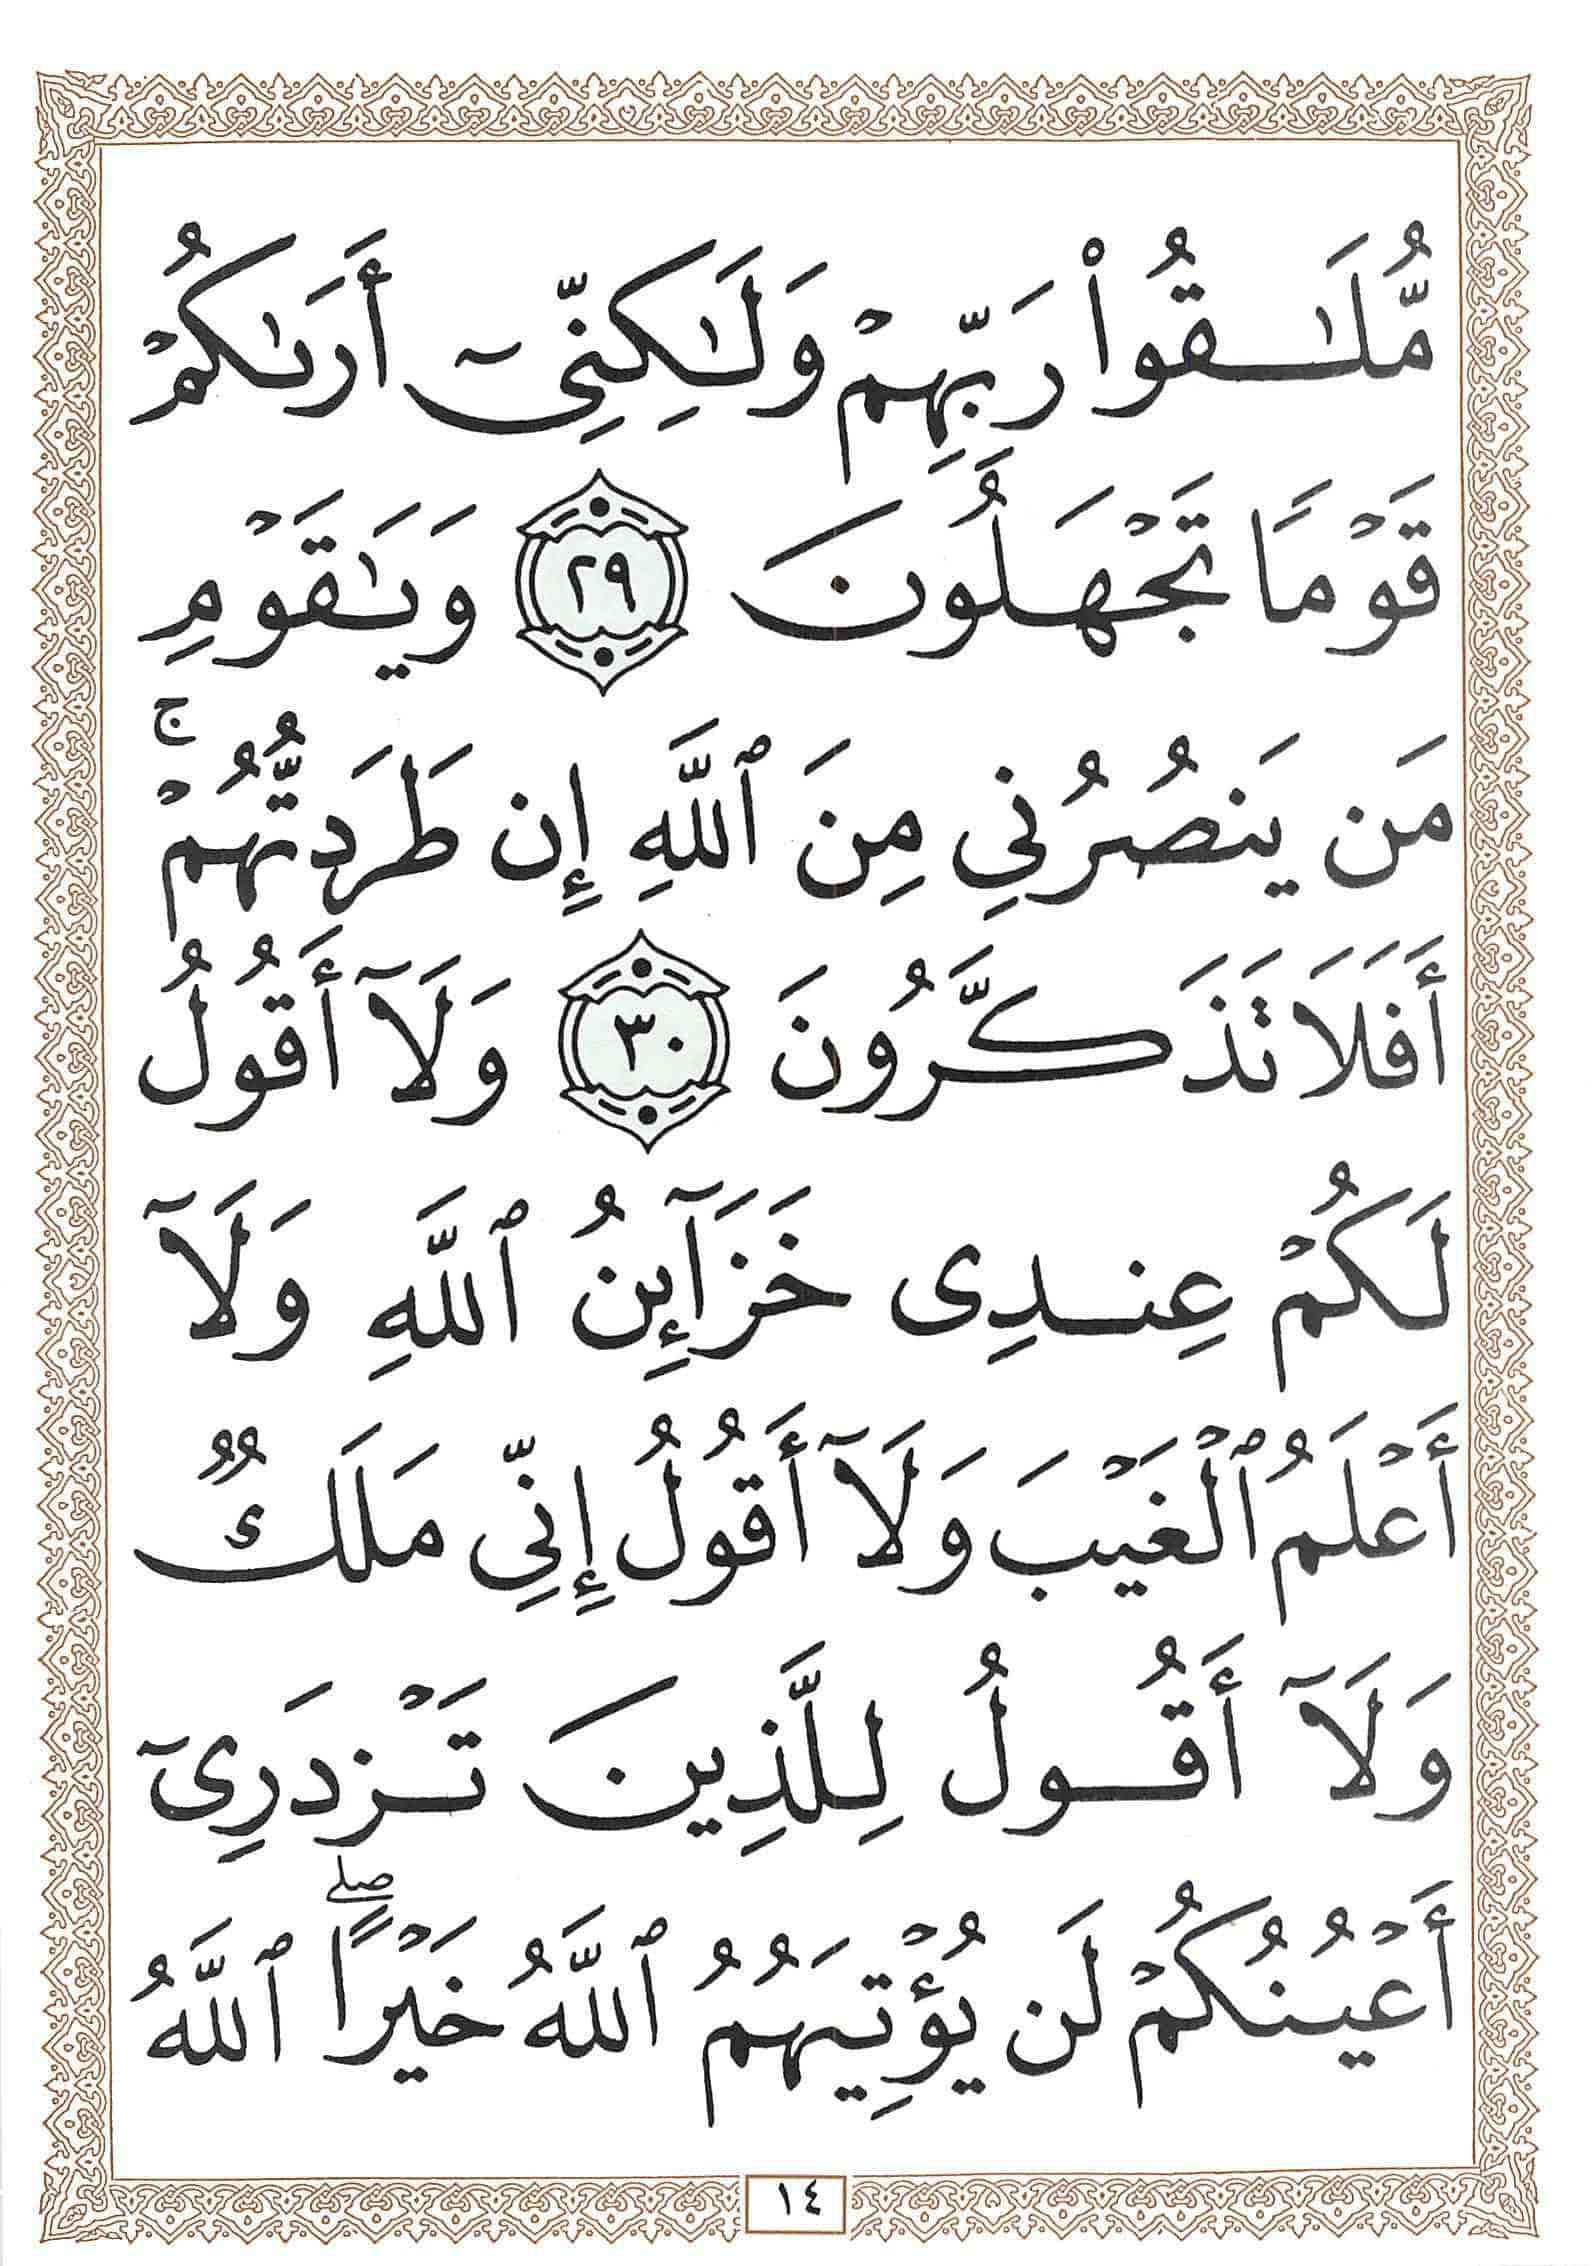 مُّلَٰقُوا۟ رَبِّهِمْ وَلَٰكِنِّىٓ أَرَىٰكُمْ
قَوْمًا تَجْهَلُونَ ٢٩ وَيَٰقَوْمِ
مَن يَنصُرُنِي مِنَ ٱللَّهِ إِن طَرَدتُّهُمْ ۚ
أَفَلَا تَذَكَّرُونَ ٣٠ وَلَآ أَقُولُ
لَكُمْ عِندِى خَزَآئِنُ ٱللَّهِ وَلَآ
أَعْلَمُ ٱلْغَيْبَ وَلَآ أَقُولُ إِنِّى مَلَكٌ
وَلَآ أَقُولُ لِلَّذِينَ تَزْدَرِىٓ
أَعْيُنُكُمْ لَن يُؤْتِيَهُمُ ٱللَّهُ خَيْرًا ۖ ٱللَّهُ
١٤